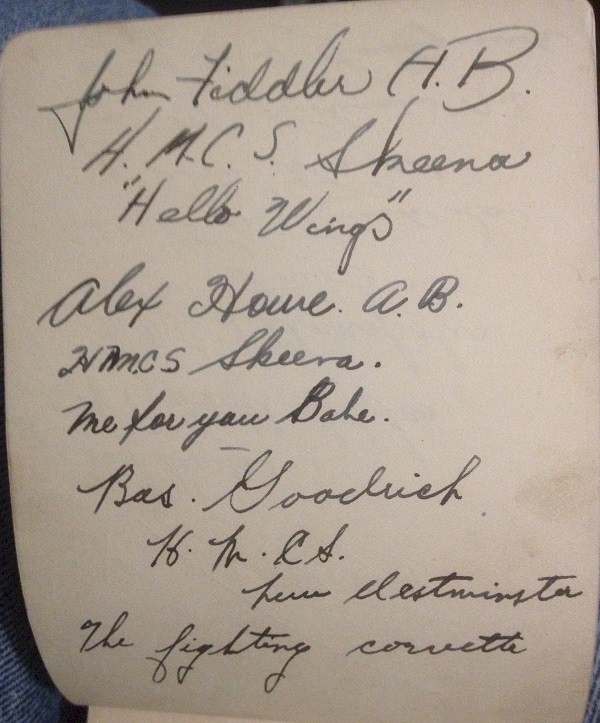 John Fiddler A.B.
H.M.C.S. Skeena
"Hello Wings"
Alex Howe. A.B.
HMCS Skeena.
Me for you Babe.
Bas. Goodrich
H.M.C.S.
New Westminster
The fighting corvette